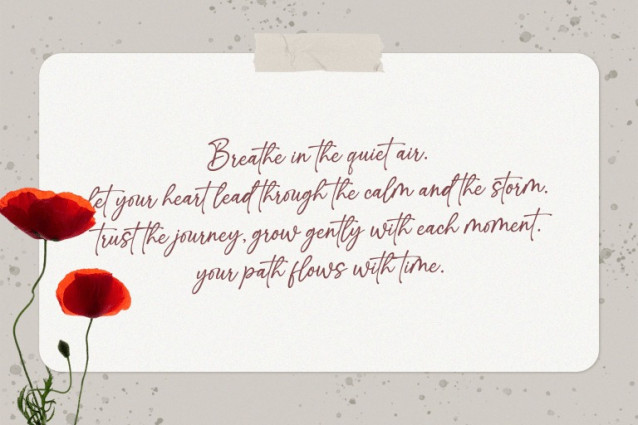 Breathe in the quiet air.
let your heart lead through the calm and the storm.
trust the journey, grow gently with each moment.
your path flows with time.